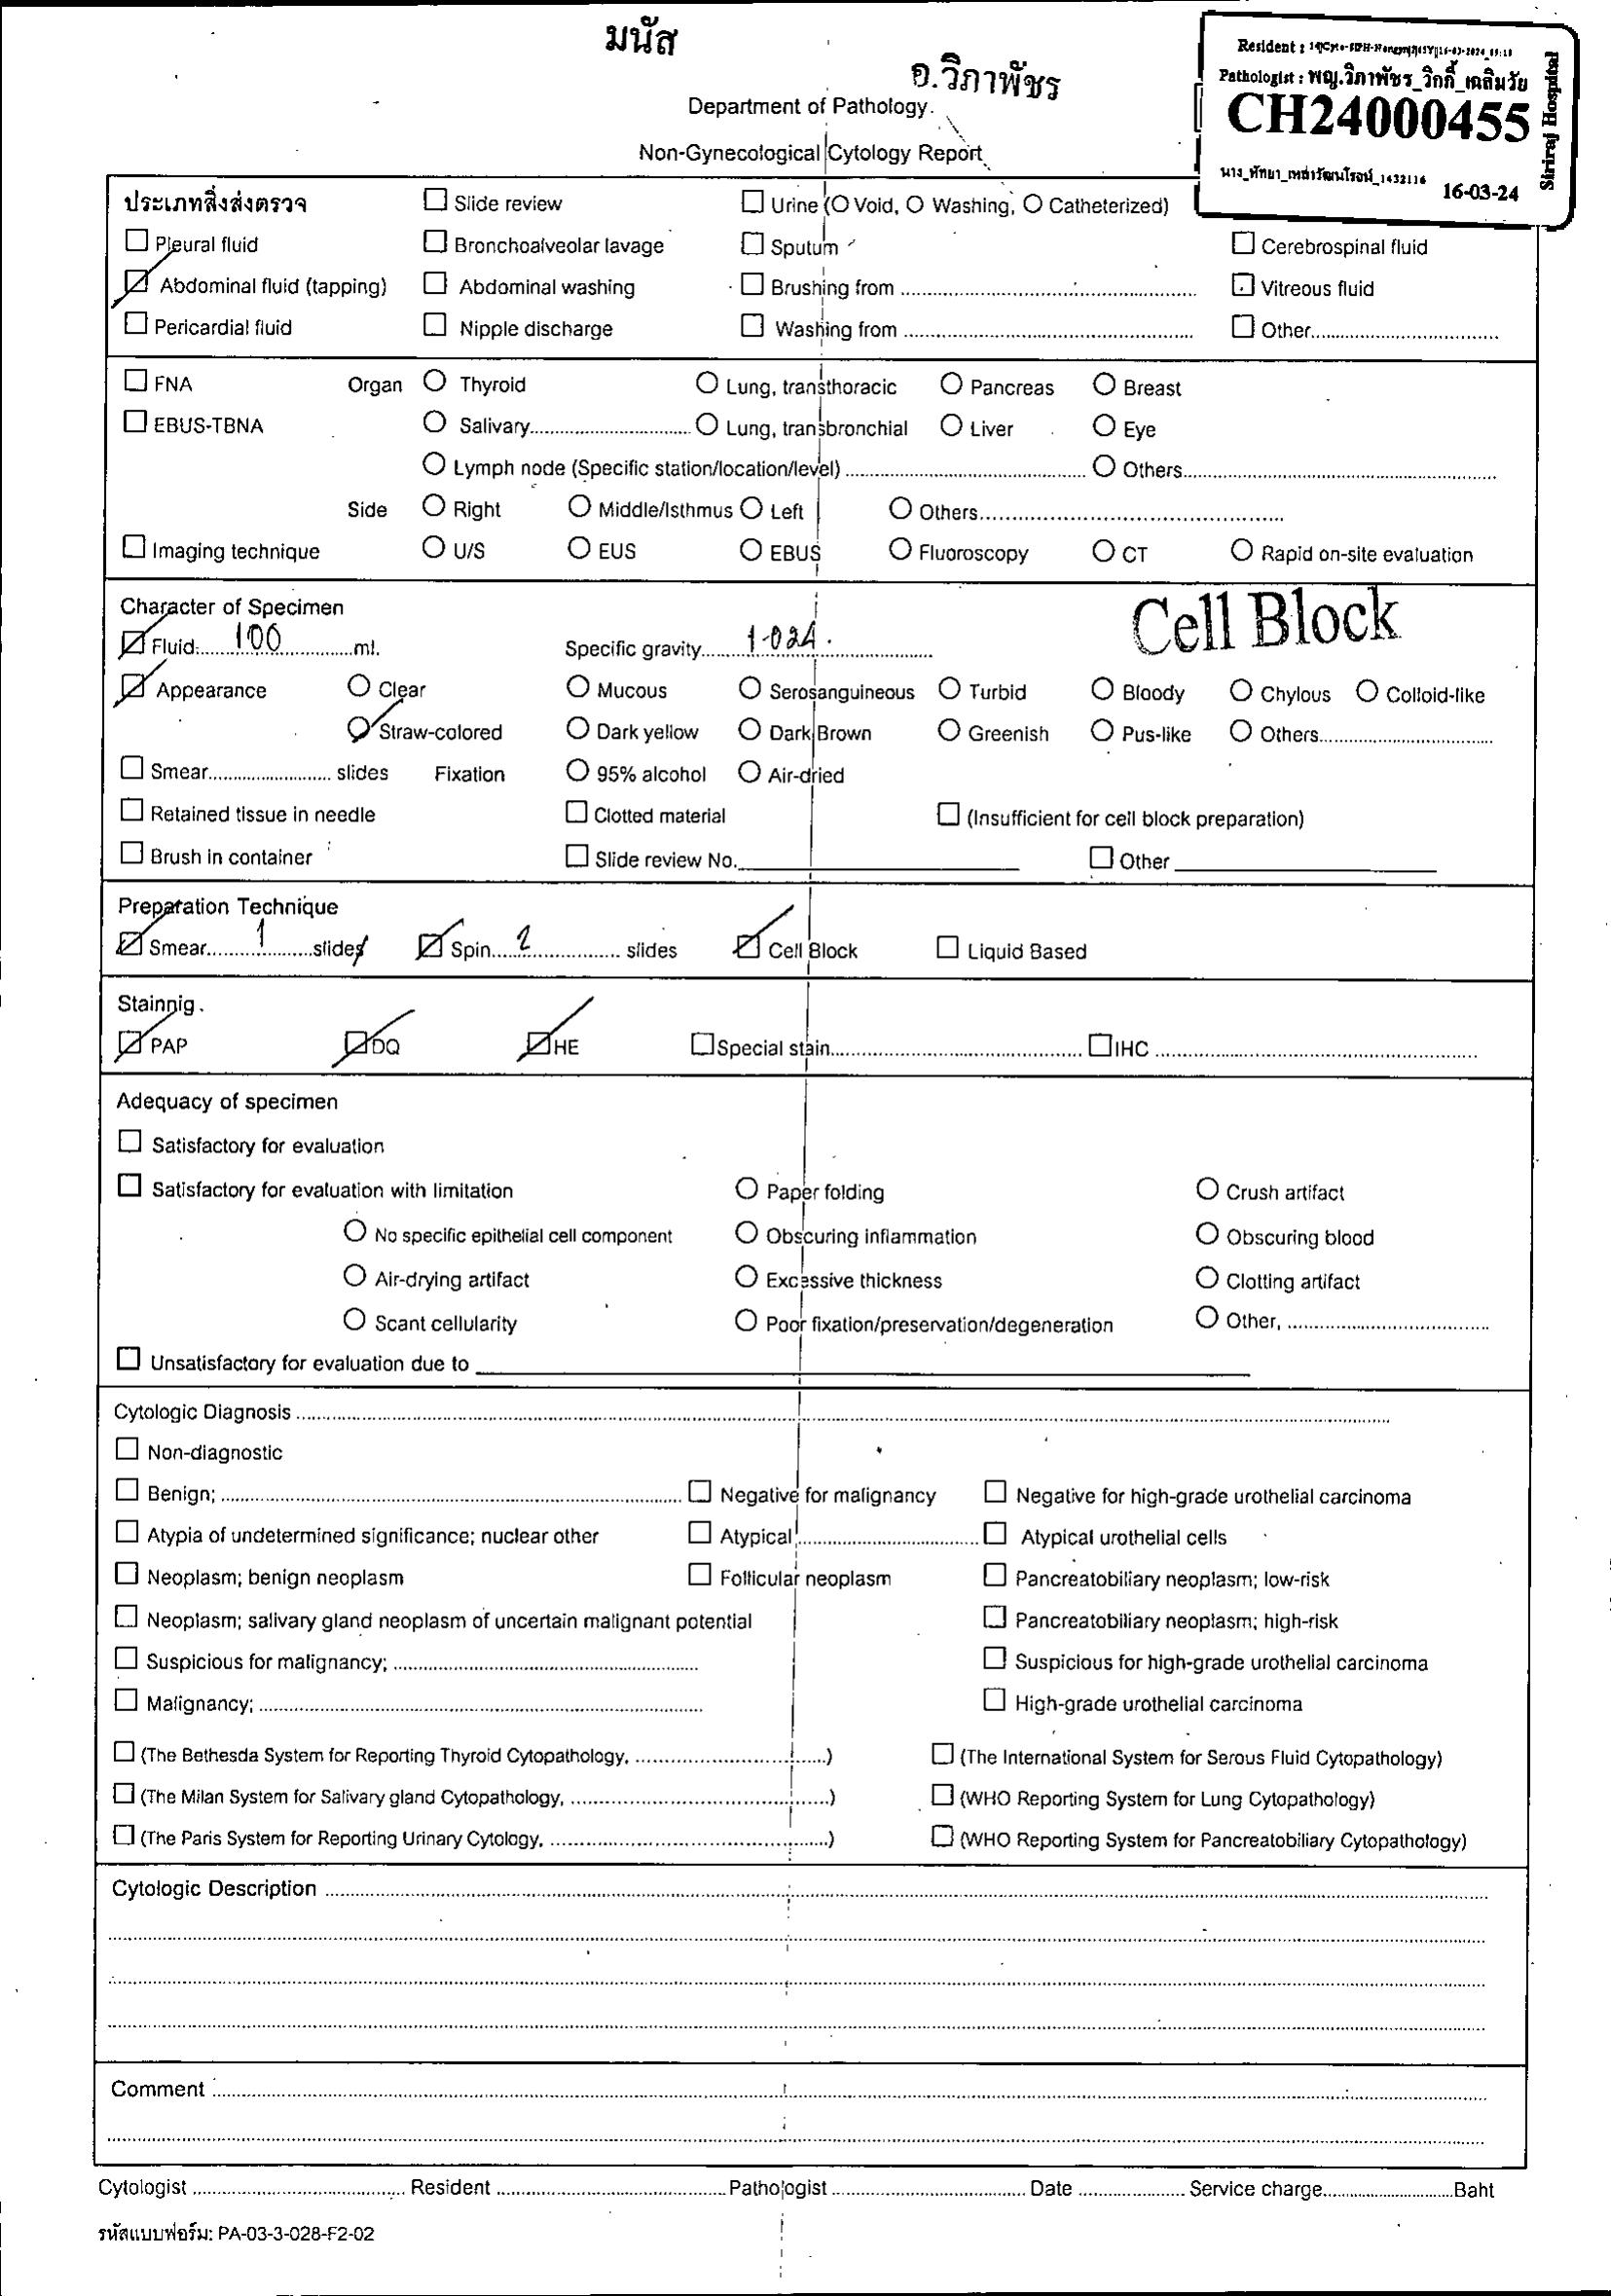 มนัส
อ.วิภาพัชร
Pathologist : พญ.วิภาพัชร_วิกกี้_เฉลิมวัย
CH24000455
16-03-24
Siriraj Hospital
Department of Pathology.
Non-Gynecological Cytology Report
ประเภทสิ่งส่งตรวจ Slide review Urine (O Void, O Washing, O Catheterized)
Pleural fluid Bronchoalveolar lavage Sputum Cerebrospinal fluid
Abdominal fluid (tapping) Abdominal washing Brushing from Vitreous fluid
Pericardial fluid Nipple discharge Washing from Other
FNA Organ Thyroid Lung, transthoracic Pancreas Breast
EBUS-TBNA Salivary Lung, transbronchial Liver Eye
Lymph node (Specific station/location/level) Others
Side Right Middle/Isthmus Left Others
Imaging technique U/S EUS EBUS Fluoroscopy CT Rapid on-site evaluation
Character of Specimen Cell Block
Fluid 100 ml. Specific gravity 1.024.
Appearance Clear Mucous Serosanguineous Turbid Bloody Chylous Colloid-like
Straw-colored Dark yellow Dark Brown Greenish Pus-like Others
Smear slides Fixation 95% alcohol Air-dried
Retained tissue in needle Clotted material (Insufficient for cell block preparation)
Brush in container Slide review No. Other
Preparation Technique
Smear 1 slides Spin 2 slides Cell Block Liquid Based
Stainnig.
PAP DQ HE Special stain IHC
Adequacy of specimen
Satisfactory for evaluation
Satisfactory for evaluation with limitation Paper folding Crush artifact
No specific epithelial cell component Obscuring inflammation Obscuring blood
Air-drying artifact Excessive thickness Clotting artifact
Scant cellularity Poor fixation/preservation/degeneration Other,
Unsatisfactory for evaluation due to
Cytologic Diagnosis
Non-diagnostic
Benign; Negative for malignancy Negative for high-grade urothelial carcinoma
Atypia of undetermined significance; nuclear other Atypical Atypical urothelial cells
Neoplasm; benign neoplasm Follicular neoplasm Pancreatobiliary neoplasm; low-risk
Neoplasm; salivary gland neoplasm of uncertain malignant potential Pancreatobiliary neoplasm; high-risk
Suspicious for malignancy; Suspicious for high-grade urothelial carcinoma
Malignancy; High-grade urothelial carcinoma
(The Bethesda System for Reporting Thyroid Cytopathology, ) (The International System for Serous Fluid Cytopathology)
(The Milan System for Salivary gland Cytopathology, ) (WHO Reporting System for Lung Cytopathology)
(The Paris System for Reporting Urinary Cytology, ) (WHO Reporting System for Pancreatobiliary Cytopathology)
Cytologic Description
Comment
Cytologist Resident Pathologist Date Service charge Baht
รหัสแบบฟอร์ม: PA-03-3-028-F2-02